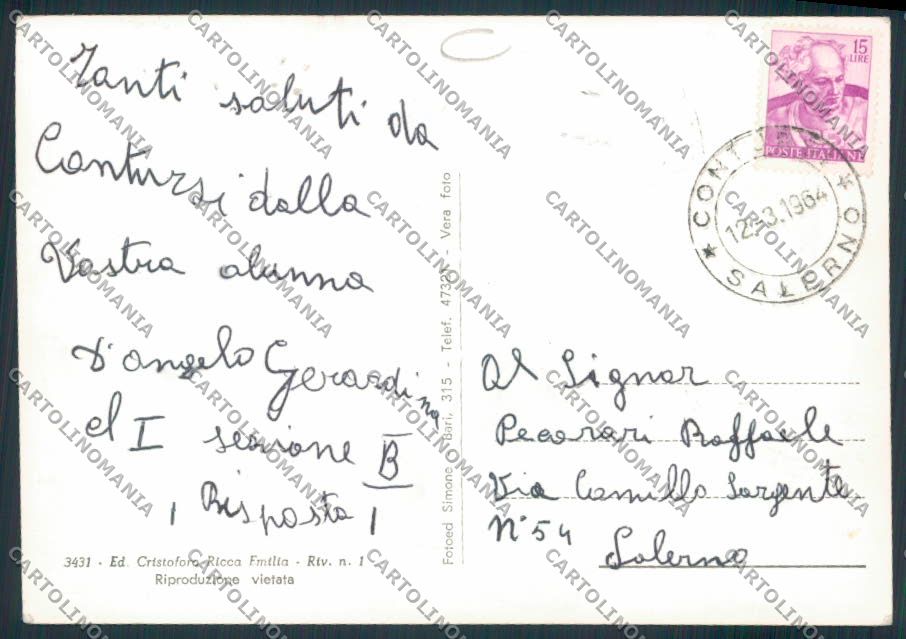 Tanti saluti da
Contursi dalla
Vostra alunna
D'angelo Gerardina
cl I sezione B
, Risposta ,
3431 - Ed. Cristofaro Ricca Emilia - Riv. n. 1
Riproduzione vietata
Fotoed Simone - Bari, 315 - Telef. 47321 - Vera foto
15
LIRE
POSTE ITALIANE
CONTURSI
12.3.1964
SALERNO
Al Signor
Pecorari Raffaele
Via Camillo Sorgente
N° 54
Salerno
CARTOLINOMANIA